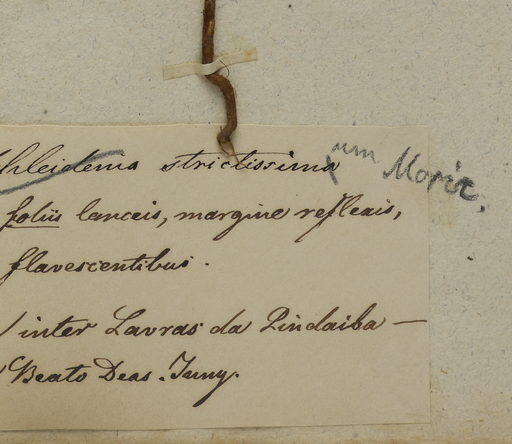 chleidenia strictissima um Moric.
foliis lanceis, margine reflexis,
flavescentibus.
inter Lavras da Pindaiba —
Beato Deas. Juny.